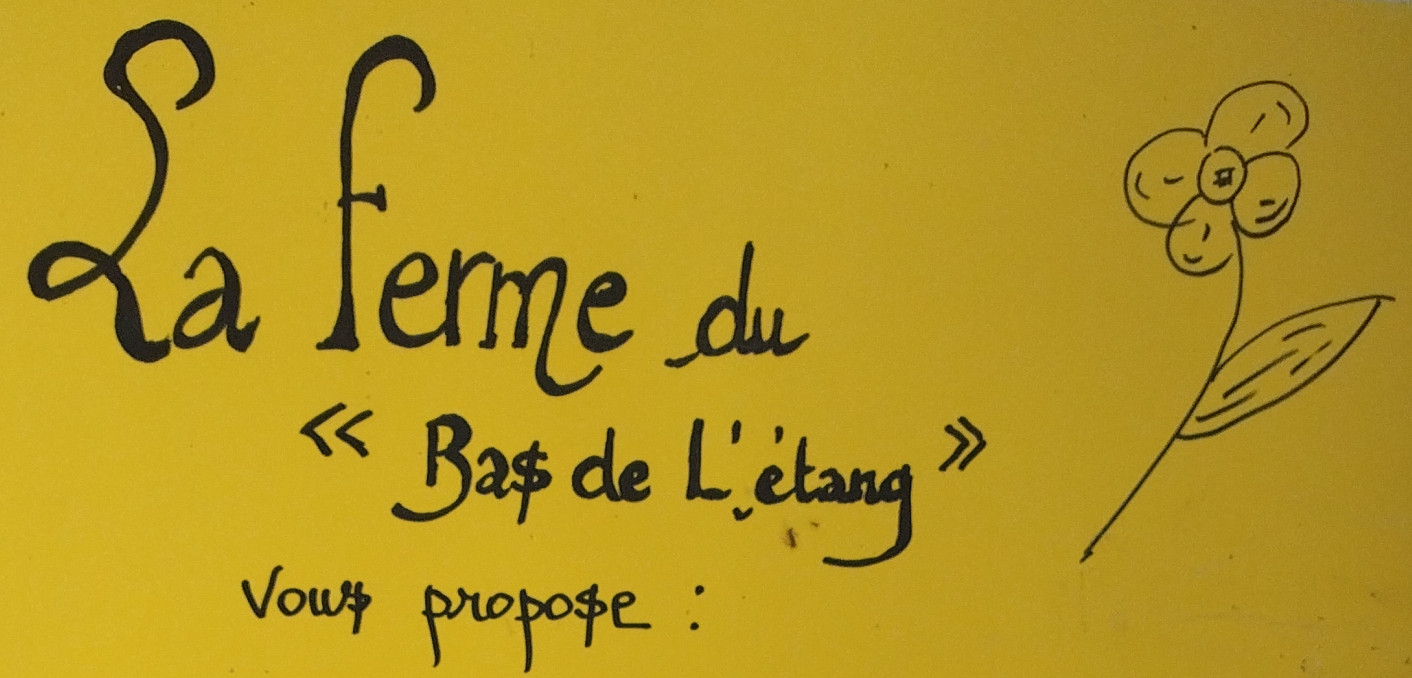 La ferme du
« Bas de L'étang »
Vous propose :